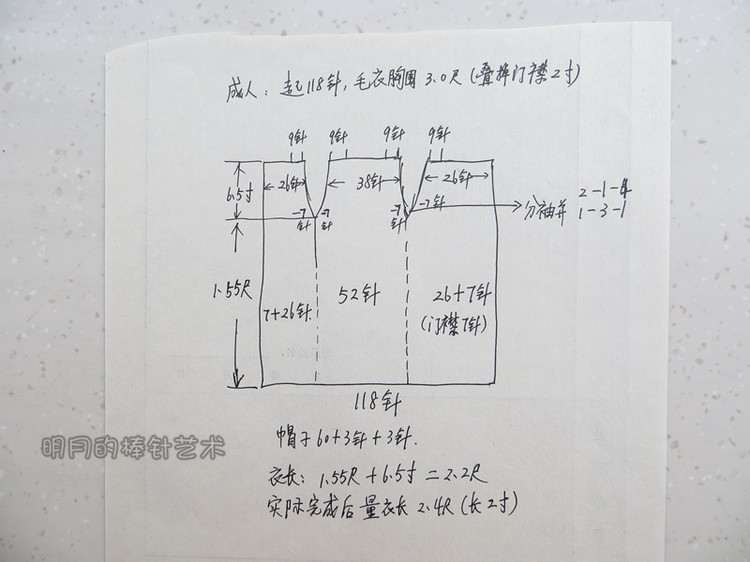 成人：起118针，毛衣胸围3.0尺（叠掉门襟2寸）
9针 9针 9针 9针
6.5寸
26针 38针 26针
-7针 -7针 -7针 -7针
分袖并 2-1-4
1-3-1
1.55尺
7+26针 52针 26+7针
（门襟7针）
118针
帽子60+3针+3针.
衣长：1.55尺+6.5寸=2.2尺
实际完成后量衣长2.4尺（长2寸）
明月的棒针艺术